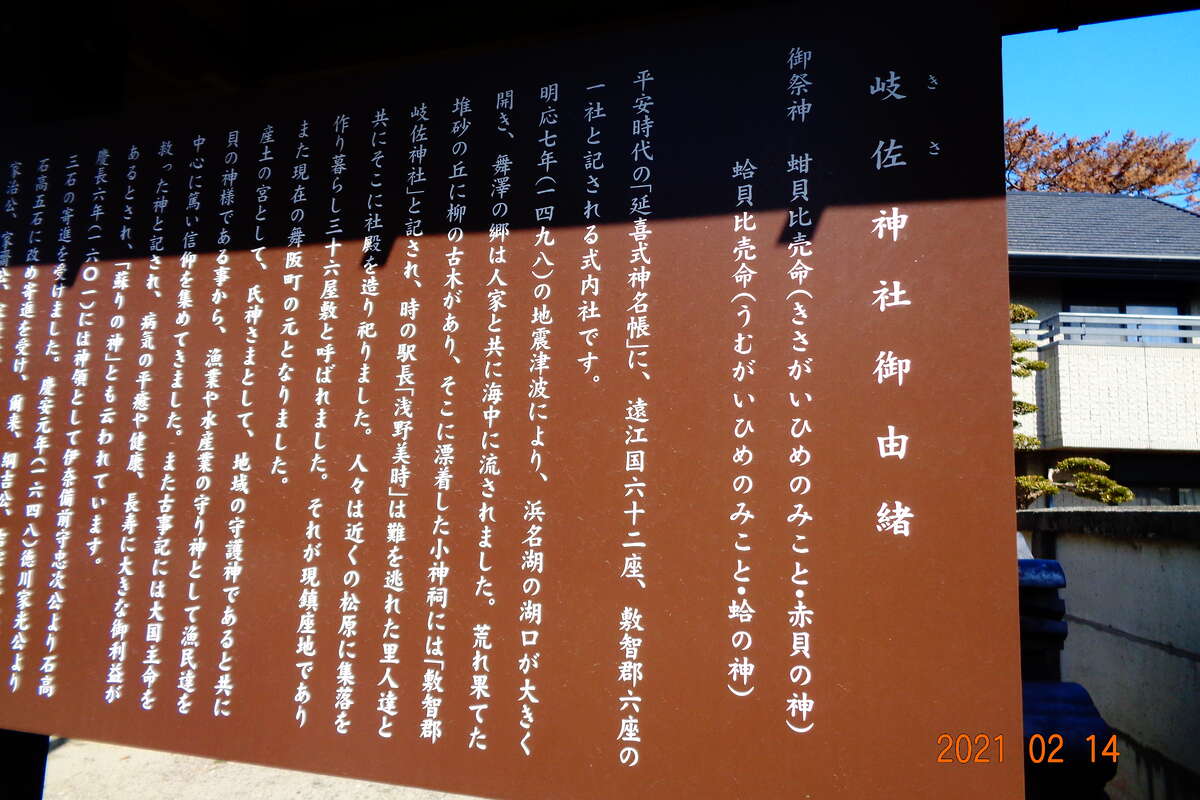 きさ
岐佐神社御由緒
御祭神 蚶貝比売命(きさがいひめのみこと・赤貝の神)
蛤貝比売命(うむがいひめのみこと・蛤の神)
平安時代の「延喜式神名帳」に、遠江国六十二座、敷智郡六座の
一社と記される式内社です。
明応七年(一四九八)の地震津波により、浜名湖の湖口が大きく
開き、舞澤の郷は人家と共に海中に流されました。荒れ果てた
堆砂の丘に柳の古木があり、そこに漂着した小神祠には「敷智郡
岐佐神社」と記され、時の駅長「浅野美時」は難を逃れた里人達と
共にそこに社殿を造り祀りました。人々は近くの松原に集落を
作り暮らし三十六屋敷と呼ばれました。それが現鎮座地であり
また現在の舞阪町の元となりました。
産土の宮として、氏神さまとして、地域の守護神であると共に
貝の神様である事から、漁業や水産業の守り神として漁民達を
中心に篤い信仰を集めてきました。また古事記には大国主命を
救った神と記され、病気の平癒や健康、長寿に大きな御利益が
あるとされ、「蘇りの神」とも云われています。
慶長六年(一六〇一)には神領として伊奈備前守忠次公より石高
三石の寄進を受けました。慶安元年(一六四八)徳川家光公より
石高五石に改め寄進を受け、爾来、綱吉公、
家治公、家斉公、
2021 02 14